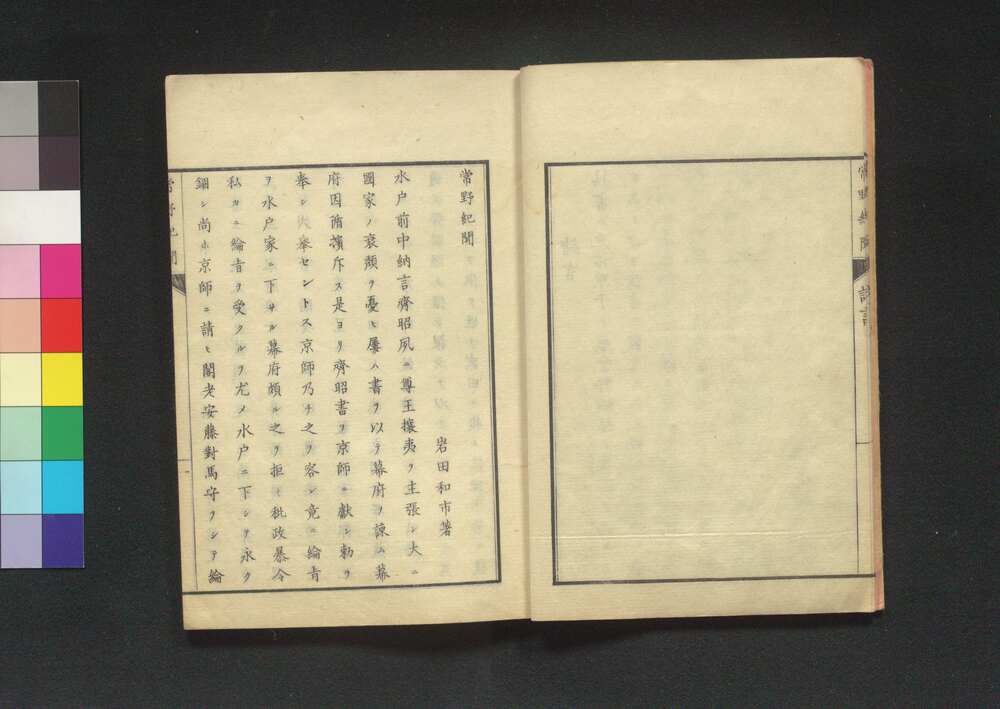 常野紀聞
誌言
常野紀聞
岩田和市著
水户前中納言齊昭夙ニ尊王攘夷ヲ主張シ大ニ
國家ノ衰頽ヲ憂ヒ屢ハ書ヲ以テ幕府ヲ諫ム幕
府因循擯斥ス是ヨリ齊昭書ヲ京師ニ獻シ勅ヲ
奉シ大擧セントス京師乃チ之ヲ容シ竟ニ綸旨
ヲ水户家ニ下サル幕府頗ル之ヲ拒ミ秕政暴令
私カニ綸旨ヲ受クルヲ尤メ水户ニ下シテ永ク
錮シ尚ホ京師ニ請ヒ閣老安藤對馬守ヲシテ綸
常野紀聞
一